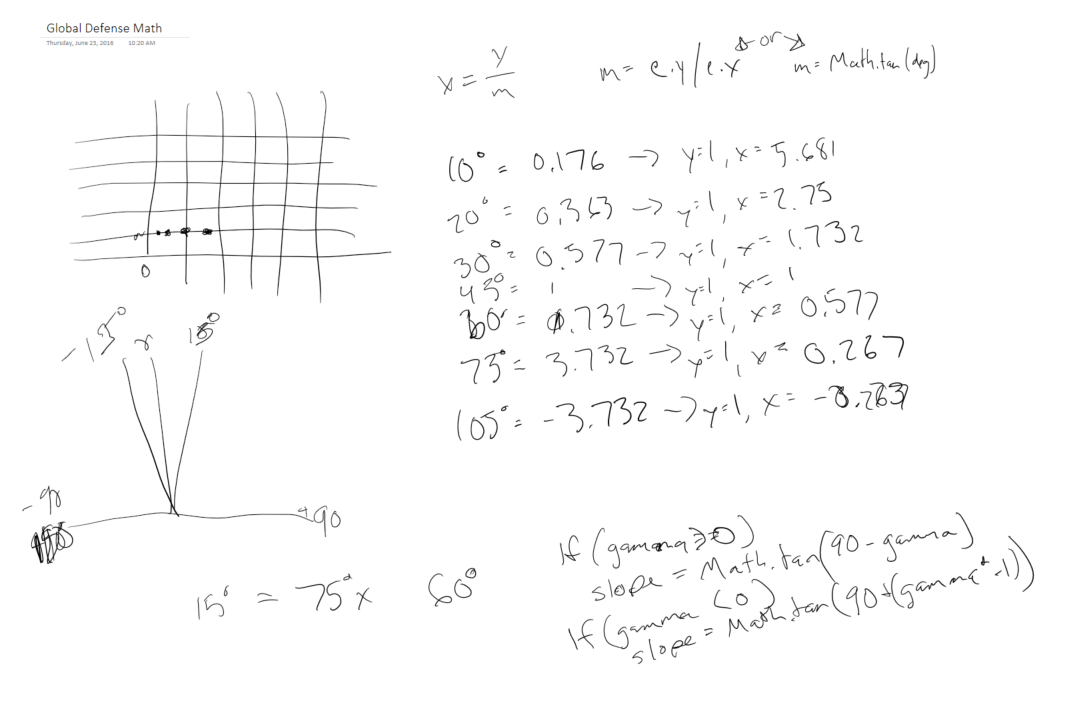 Global Defense Math
Thursday, June 23, 2016 10:20 AM
x = y/m
m = e.y/e.x or m = Math.tan(deg)
10° = 0.176 → y=1, x=5.681
20° = 0.363 → y=1, x=2.75
30° = 0.577 → y=1, x=1.732
45° = 1 → y=1, x=1
60° = 1.732 → y=1, x=0.577
75° = 3.732 → y=1, x=0.267
105° = -3.732 → y=1, x=
0
-15° 15°
-90
+90
15° = 75° x 60°
If (gamma ≥ 0)
slope = Math.tan(90 - gamma)
If (gamma < 0)
slope = Math.tan(90 + (gamma * -1))